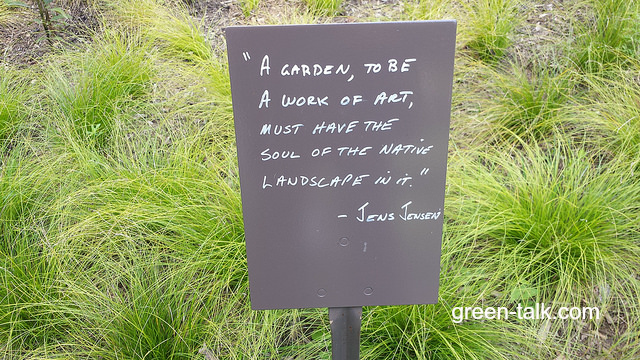 "A GARDEN, TO BE
A WORK OF ART,
MUST HAVE THE
SOUL OF THE NATIVE
LANDSCAPE in it."
- JENS JENSEN
green-talk.com